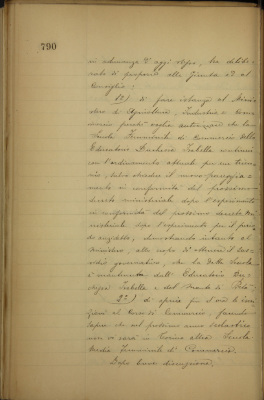 790
in adunanza d'oggi stesso, ha delibe-
rato di proporre alla Giunta ed al
Consiglio:
1°) di fare istanza al Mini-
stero di Agricoltura, Industria e Com-
mercio perchè voglia autorizzare che la
Scuola Femminile di Commercio
Educatorio Duchessa Isabella continui
con l'ordinamento attuale per un trien-
nio, salvo chiedere il nuovo pareggia-
mento in conformità del prossimo
decreto ministeriale dopo l'esperimento
in conformità del prossimo decreto mi-
nisteriale dopo l'esperimento pel
ministero, allo scopo di ottenere il
sussidio governativo, che ha detta Scuola
dall'Educatorio Du-
chessa Isabella e dal Monte di Pietà
2°) di aprire per il 1916 le iscri-
zioni al Corso di Commercio, facendo
sapere che nel prossimo anno scolastico
non vi sarà in Torino altra Scuola
Media Femminile di Commercio.
Dopo breve discussione,